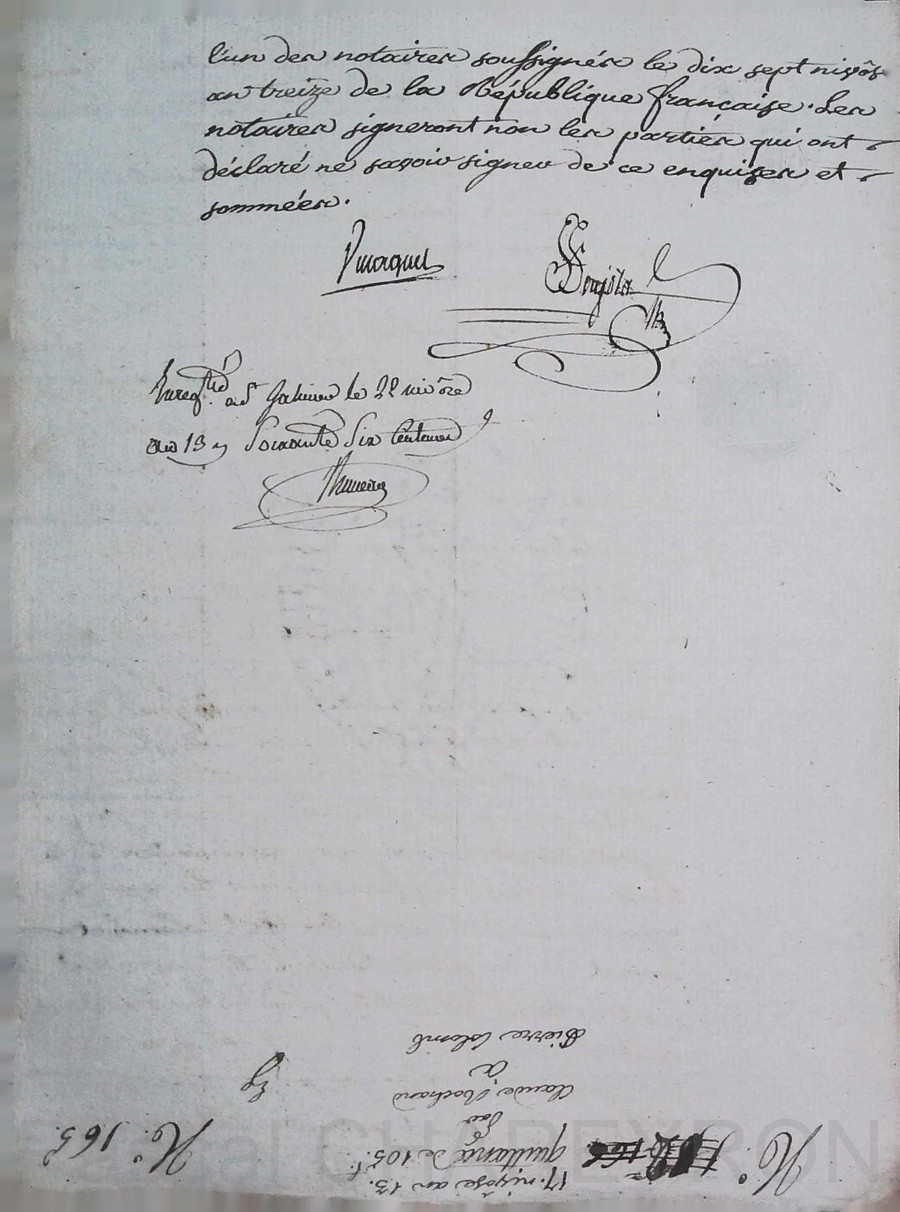 l'un des notaires soussignés le dix sept nivôse
an treize de la République française. Les
notaires signeront non les parties qui ont
déclaré ne savoir signer de ce enquises et
sommées.
Enreg.tré à St Galmier le 22 nivôse
an 13 Soixante Six Centimes
17. nivôse an 13.
quittance de 105
par
Claude Rochand
à
Pierre Colomb
N.º
N.º 165.
CHAPEYRON